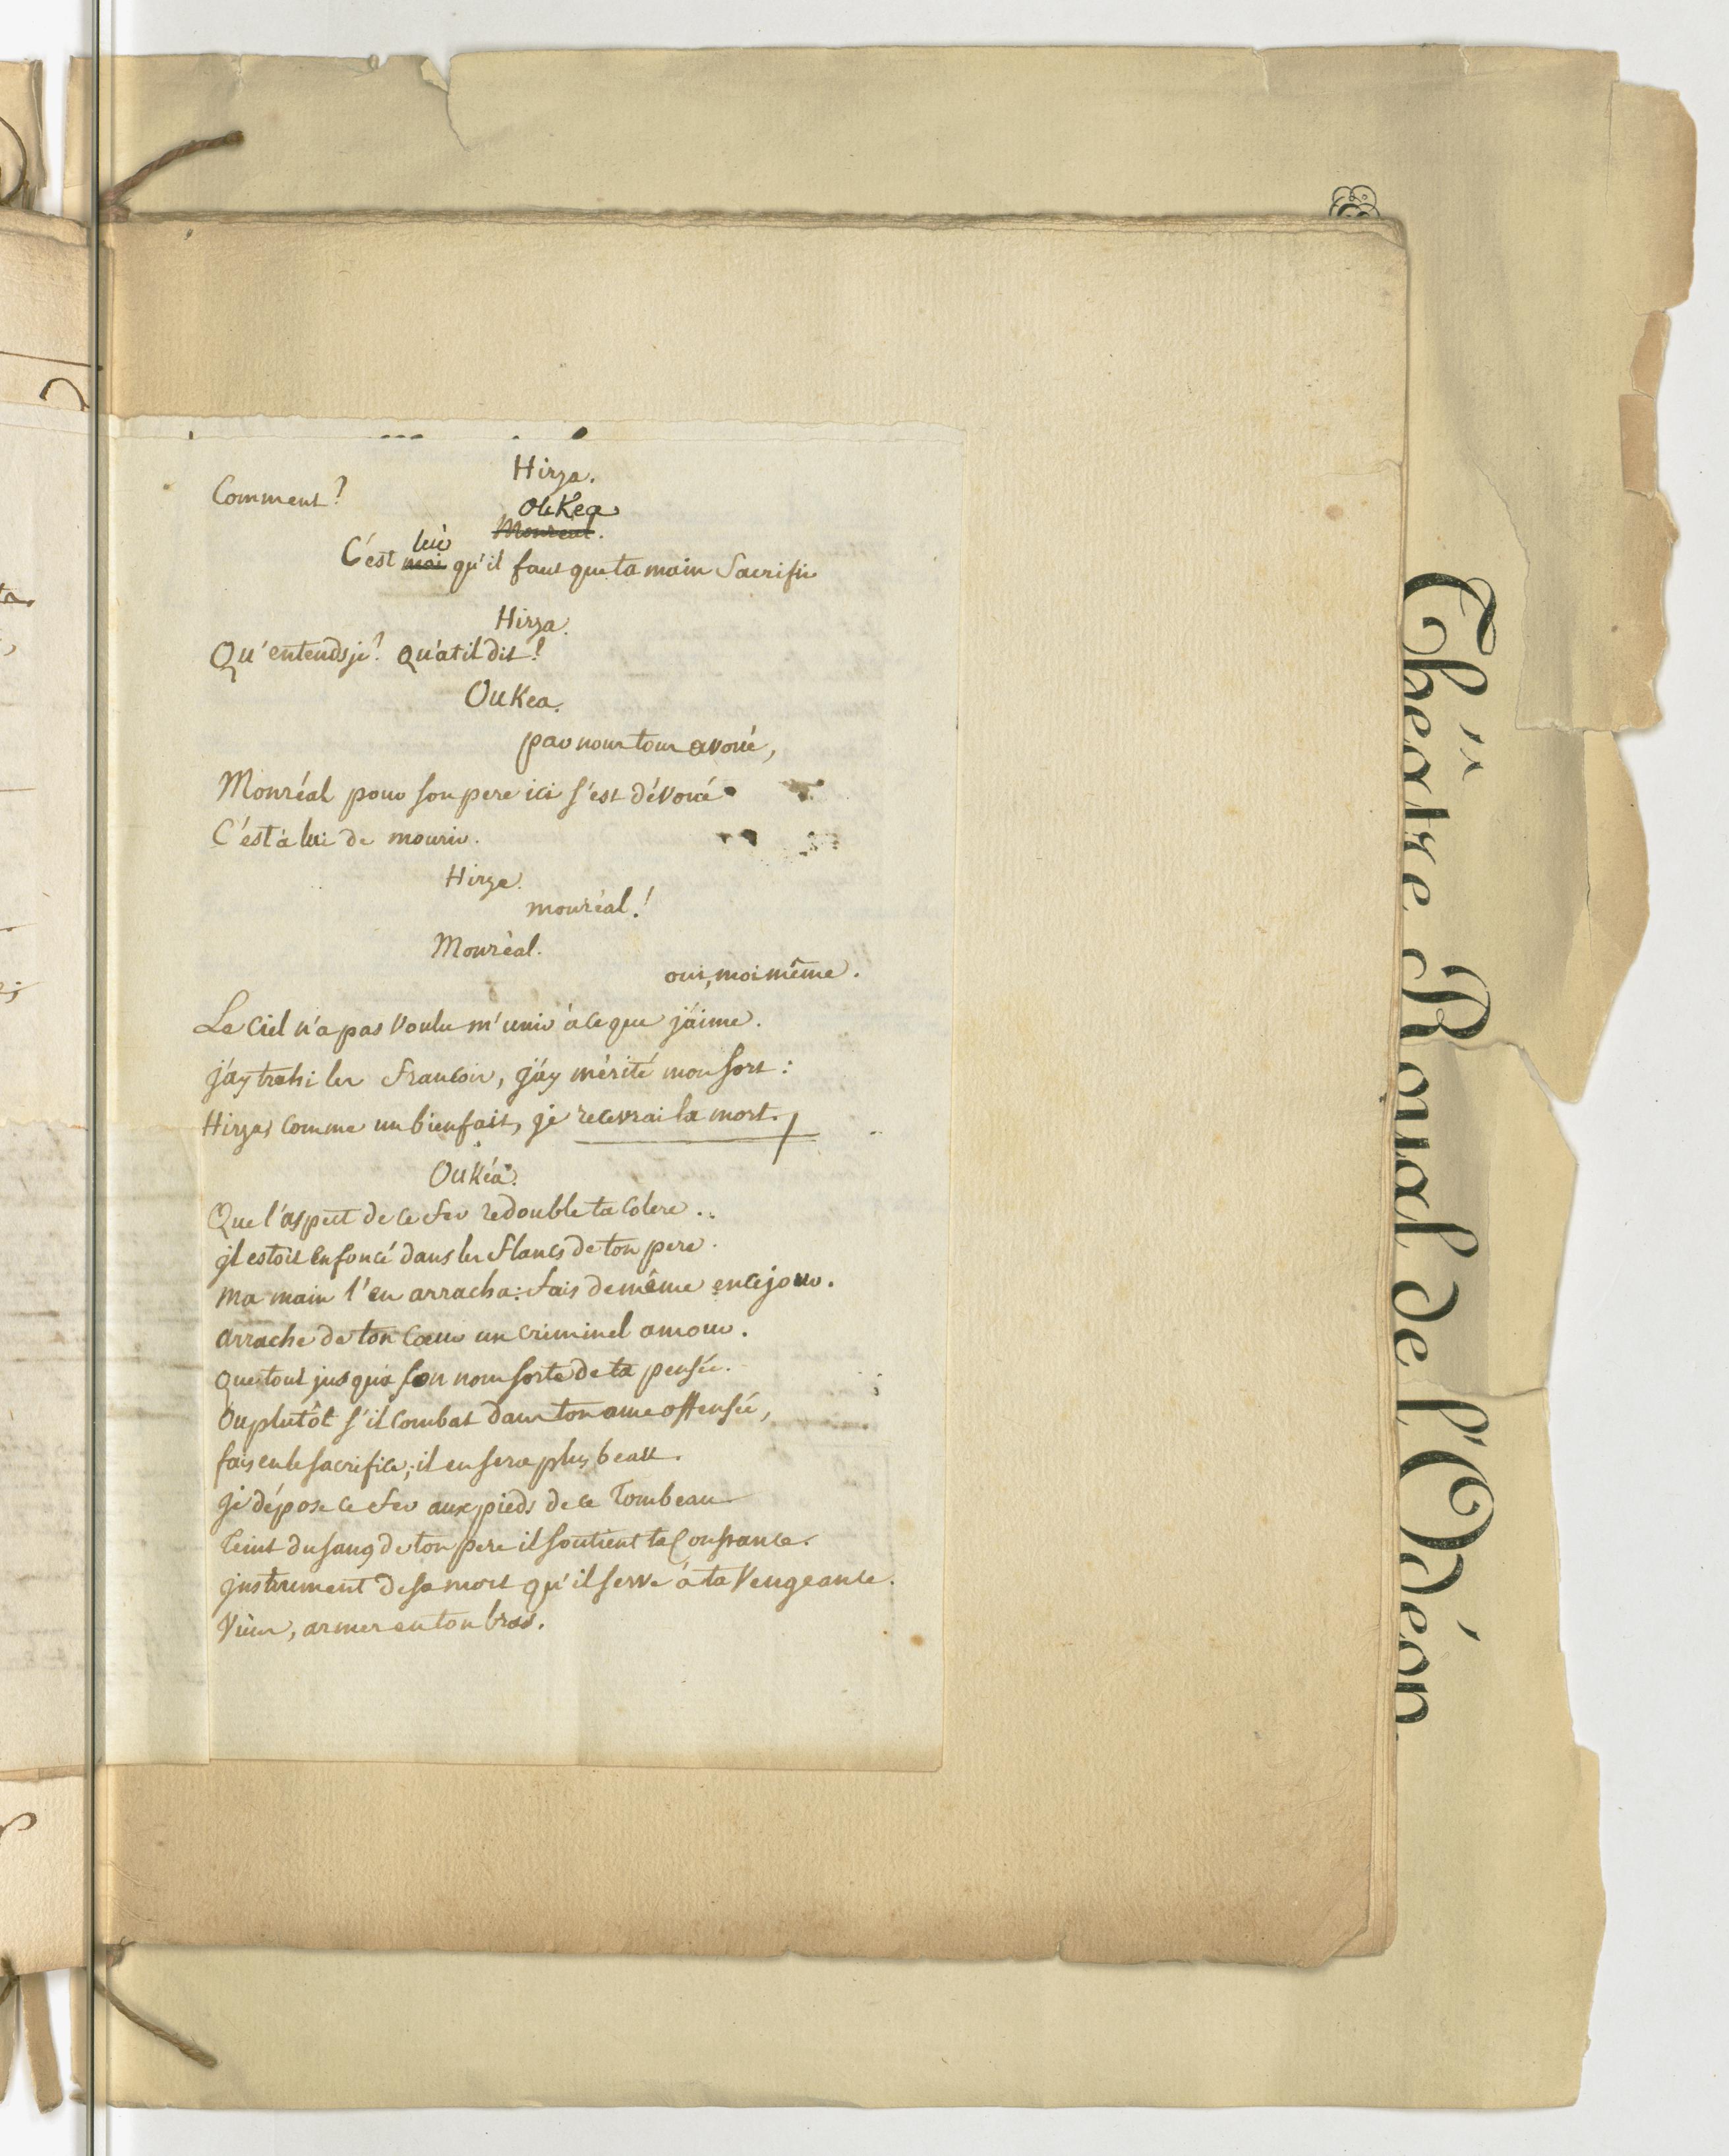 Hirza.
Comment?
OuKea
Monreal.
lui
C'est moi qu'il faut que ta main Sacrifie
Hirza.
Qu'entends je? Qu'a t il dit?
OuKea.
par nous tous avoué,
Monréal pour son pere ici s'est dévoué
C'est à lui de mourir.
Hirza.
monréal!
Monréal.
oui, moi même.
Le Ciel n'a pas voulu m'unir à ce que j'aime.
j'ay trahi les francois, j'ay mérité mon sort:
Hirza, comme un bienfait, je recevrai la mort.
OuKéa.
Que l'aspect de ce fer redouble ta Colere..
il estoit enfoncé dans les flancs de ton pere.
Ma main l'en arracha: fais de même en ce jour.
arrache de ton Coeur un Criminel amour.
que tout jusqu'à son nom sorte de ta pensée.
Ou plutôt s'il combat dans ton ame offensée,
fais en le sacrifice, il en sera plus beau.
je dépose ce fer aux pieds de ce Tombeau
Teint du sang de ton pere il soutient ta Constance.
instrument de sa mort qu'il serve à ta Vengeance.
Viens, armes en ton bras.
Théâtre Royal de l'Odéon